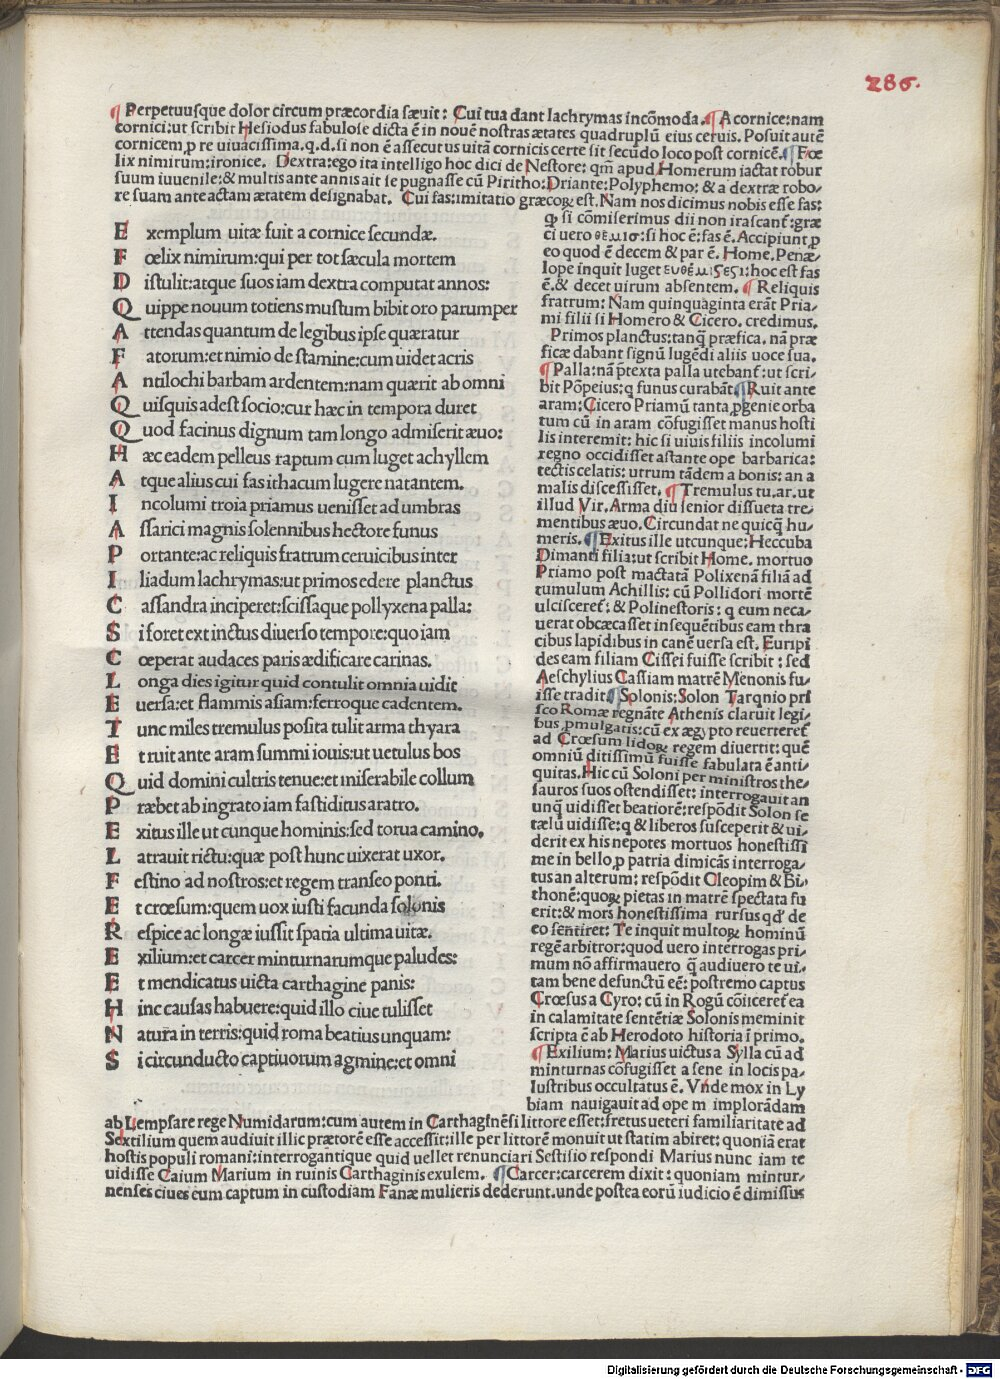 286.
¶ Perpetuusque dolor circum præcordia sæuit: Cui tua dant lachrymas incōmoda. ¶ A cornice: nam
cornici: ut scribit Hesiodus fabulose dicta ē in nouē nostras ætates quadruplū eius ceruis. Posuit autē
cornicem ꝓ re uiuacissima. q.d. si non ē assecutus uitā cornicis certe sit secūdo loco post cornicē. ¶ Fœ
lix nimirum: ironice. Dextra: ego ita intelligo hoc dici de Nestore: qm̄ apud Homerum iactat robur
suum iuuenile: & multis ante annis ait se pugnasse cū Piritho: Driante: Polyphemo: & a dextræ robo/
re suam ante actam ætatem designabat. Cui fas: imitatio græcoꝝ est. Nam nos dicimus nobis esse fas:
E xemplum uitæ fuit a cornice secundæ.
F œlix nimirum: qui per tot sæcula mortem
D istulit: atque suos iam dextra computat annos:
Q uippe nouum totiens mustum bibit oro parumper
A ttendas quantum de legibus ipse quæratur
F atorum: et nimio de stamine: cum uidet acris
A ntilochi barbam ardentem: nam quærit ab omni
Q uisquis adest socio: cur hæc in tempora duret
Q uod facinus dignum tam longo admiserit æuo:
H æc eadem pelleus raptum cum luget achyllem
A tque alius cui fas ithacum lugere natantem.
I ncolumi troia priamus uenisset ad umbras
A ssarici magnis solennibus hectore funus
P ortante: ac reliquis fratrum ceruicibus inter
I liadum lachrymas: ut primos edere planctus
C assandra inciperet: scissaque pollyxena palla:
S i foret extinctus diuerso tempore: quo iam
C œperat audaces paris ædificare carinas.
L onga dies igitur quid contulit omnia uidit
E uersa: et flammis asiam: ferroque cadentem.
T unc miles tremulus posita tulit arma thyara
E t ruit ante aram summi iouis: ut uetulus bos
Q uid domini cultris tenue: et miserabile collum
P ræbet ab ingrato iam fastiditus aratro.
E xitus ille ut cunque hominis: sed torua camino.
L atrauit rictu: quæ post hunc uixerat uxor.
F estino ad nostros: et regem transeo ponti.
E t crœsum: quem uox iusti facunda solonis
R espice ac longæ iussit spatia ultima uitæ.
E xilium: et carcer minturnarumque paludes:
E t mendicatus uicta carthagine panis:
H inc causas habuere: quid illo ciue tulisset
N atura in terris: quid roma beatius unquam:
S i circunducto captiuorum agmine: et omni
ꝙ si cōmiserimus dii non irascant̄: græ
ci uero θεμισ: si hoc ē: fas ē. Accipiunt ꝓ
eo quod ē decem & par ē. Home. Penæ/
lope inquit luget: hoc est fas
ē. & decet uirum absentem. ¶ Reliquis
fratrum: Nam quinquaginta erāt Pria/
mi filii si Homero & Cicero. credimus.
Primos planctus: tanꝗ̄ præfica. nā præ
ficæ dabant signū lugēdi aliis uoce sua.
¶ Palla: nā p̄texta palla utebant̄: ut scri/
bit Pōpeius: q funus curabāt. ¶ Ruit ante
aram: Cicero Priamū tanta ꝓgenie orba
tum cū in aram cōfugisset manus hosti
lis interemit: hic si uiuis filiis incolumi
regno occidisset astante ope barbarica:
tectis celatis: utrum tādem a bonis: an a
malis discessisset. ¶ Tremulus tu. ar. ut
illud Vir. Arma diu senior dissueta tre/
mentibus æuo. Circundat ne quicꝗ̄ hu/
meris. ¶ Exitus ille utcunque: Heccuba
Dimanti filia: ut scribit Home. mortuo
Priamo post mactatā Polixenā filiā ad
tumulum Achillis: cū Pollidori mortē
ulcisceret̄: & Polinestoris: q eum neca/
uerat obcæcasset insequētibus eam thra
cibus lapidibus in canē uersa est. Euripi
des eam filiam Cissei fuisse scribit: sed
Aeschylius Cassiam matrē Menonis fu/
isse tradit. ¶ Solonis: Solon Tarqnio pri
sco Romæ regnāte Athenis claruit legi/
bus ꝓmulgatis: cū ex ægypto reuerteret̄
ad Crœsum lidoꝝ regem diuertit: quē
omniū ditissimū fuisse fabulata ē anti/
quitas. Hic cū Soloni per ministros the/
sauros suos ostendisset: interrogauit an
unꝗ̄ uidisset beatiorē: respōdit Solon se
tælū uidisse: q & liberos susceperit & ui/
derit ex his nepotes mortuos honestissi
me in bello ꝓ patria dimicās interroga/
tus an alterum: respōdit Cleopim & Bi/
thonē: quoꝝ pietas in matrē spectata fu
erit: & mors honestissima rursus qd̄ de
eo sentiret: Te inquit multoꝝ hominū
regē arbitror: quod uero interrogas pri/
mum nō affirmauero ꝗ̄ audiuero te ui/
tam bene defunctū eē: postremo captus
Crœsus a Cyro: cū in Rogū cōiiceret̄ ea
in calamitate sentētiæ Solonis meminit
scripta ē ab Herodoto historia ī primo.
¶ Exilium: Marius uictus a Sylla cū ad
minturnas cōfugisset a sene in locis pa/
lustribus occultatus ē. Vnde mox in Ly
biam nauigauit ad opem implorādam
ab Lempsare rege Numidarum: cum autem in Carthaginēsi littore esset: fretus ueteri familiaritate ad
Sextilium quem audiuit illic prætorē esse accessit: ille per littorē monuit ut statim abiret: quoniā erat
hostis populi romani: interrogantique quid uellet renunciari Sestisio respondi Marius nunc iam te
uidisse Caium Marium in ruinis Carthaginis exulem. ¶ Carcer: carcerem dixit: quoniam mintur/
nenses ciues eum captum in custodiam Fanæ mulieris dederunt. unde postea eorū iudicio ē dimissus
Digitalisierung gefördert durch die Deutsche Forschungsgemeinschaft - DFG